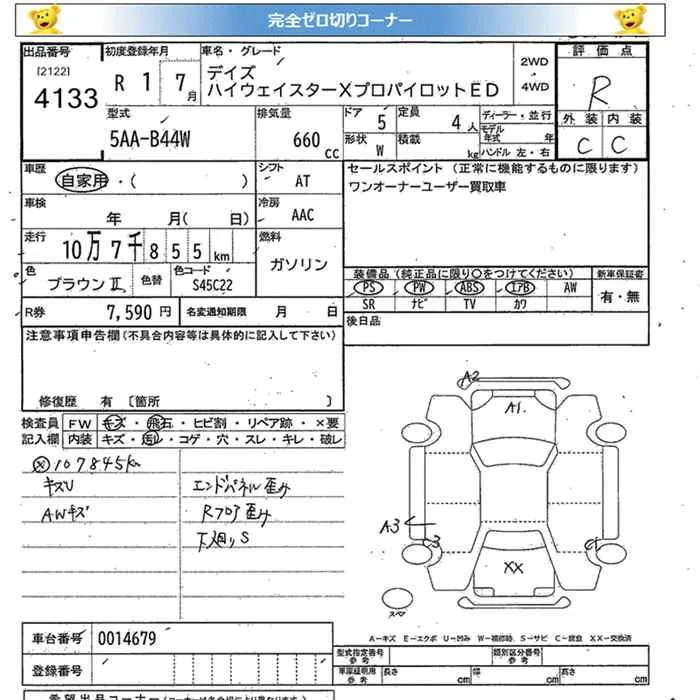 完全ゼロ切りコーナー
出品番号 初度登録年月 車名・グレード 2WD 4WD 評価点
[2122]
4133 R 1 7月 デイズ
ハイウェイスターXプロパイロットED R
型式 排気量 ドア 5 定員 4人 ディーラー・並行 外装 内装
5AA-B44W 660cc 形状 W 積載 kg モデル年式 年 ハンドル 左・右 C C
車歴 シフト セールスポイント (正常に機能するものに限ります)
自家用・( ) AT ワンオーナーユーザー買取車
車検 冷房
年 月( 日) AAC
走行 燃料
10万7千855km ガソリン
色 色替 色コード 装備品 (純正品に限り○をつけてください) 新車保証書
ブラウンⅡ S45C22 PS PW ABS エアB AW 有・無
SR ナビ TV カワ
R券 7,590円 名変通知期限 月 日 後日品
注意事項申告欄(不具合内容等は具体的に記入して下さい)
修復歴 有 [箇所 ]
検査員 FW キズ・飛石・ヒビ割・リペア跡・×要
記入欄 内装 キズ・汚レ・コゲ・穴・スレ・キレ・破レ
107845km
キズU エンドパネル歪み
AWキズ Rフロア歪み
下廻りS
A2
A1.
A3
C3 C1
XX
スペア
A-キズ E-エクボ U-凹み W-補修跡 S-サビ C-腐食 XX-交換済
車台番号 0014679
型式指定番号 参考 類別区分番号 参考
登録番号 車庫証明用 参考 長さ cm 幅 cm 高さ cm
希望出品コーナー